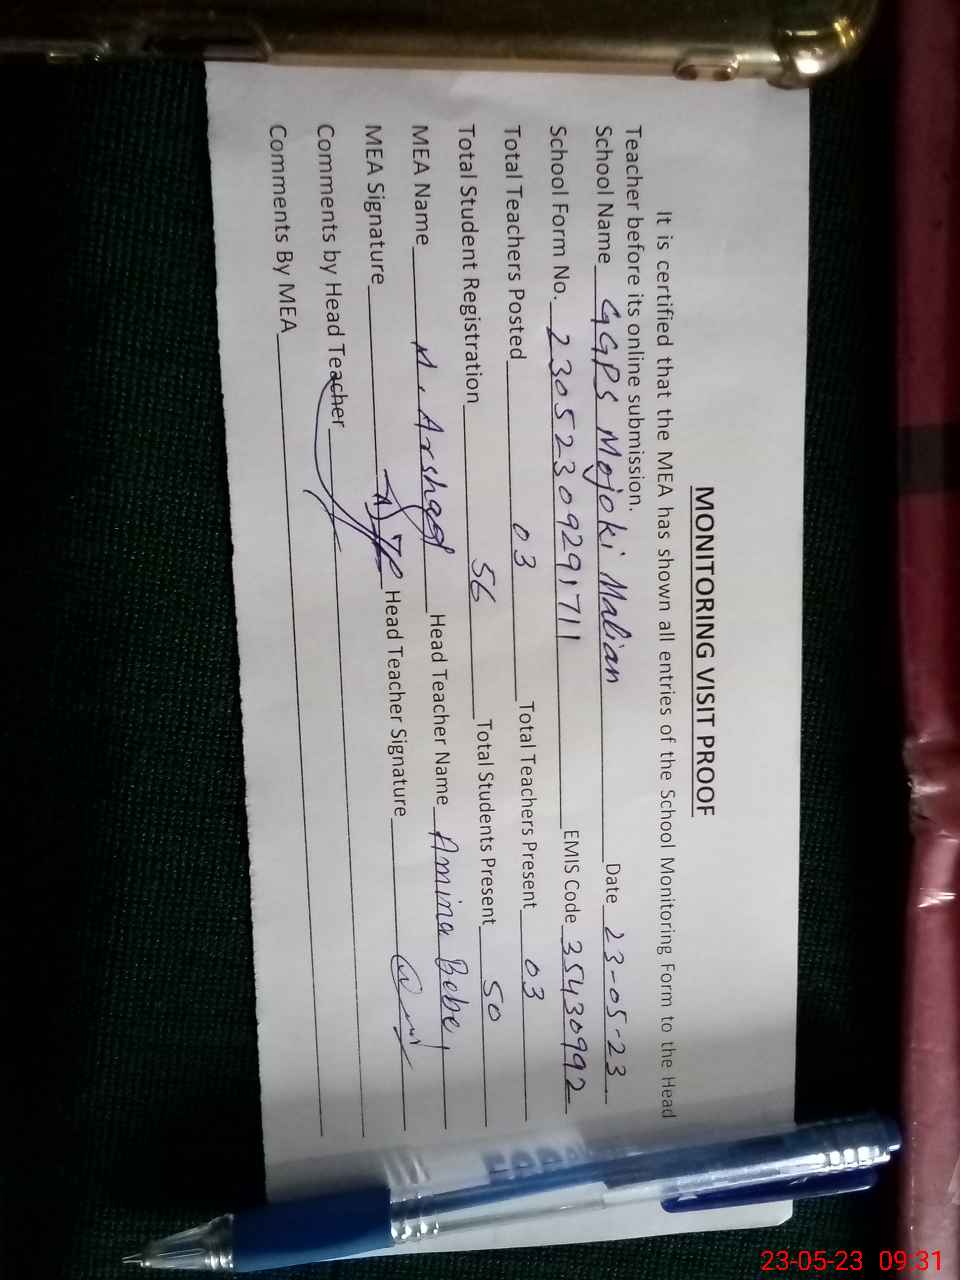 MONITORING VISIT PROOF
It is certified that the MEA has shown all entries of the School Monitoring Form to the Head
Teacher before its online submission.
School Name GGPS Mojoki Malian Date 23-05-23
School Form No. 23052309291711 EMIS Code 35430992
Total Teachers Posted 03 Total Teachers Present 03
Total Student Registration 56 Total Students Present 50
MEA Name A. Arshad Head Teacher Name Amina Bebe
MEA Signature Head Teacher Signature
Comments by Head Teacher
Comments By MEA
23-05-23 09:31